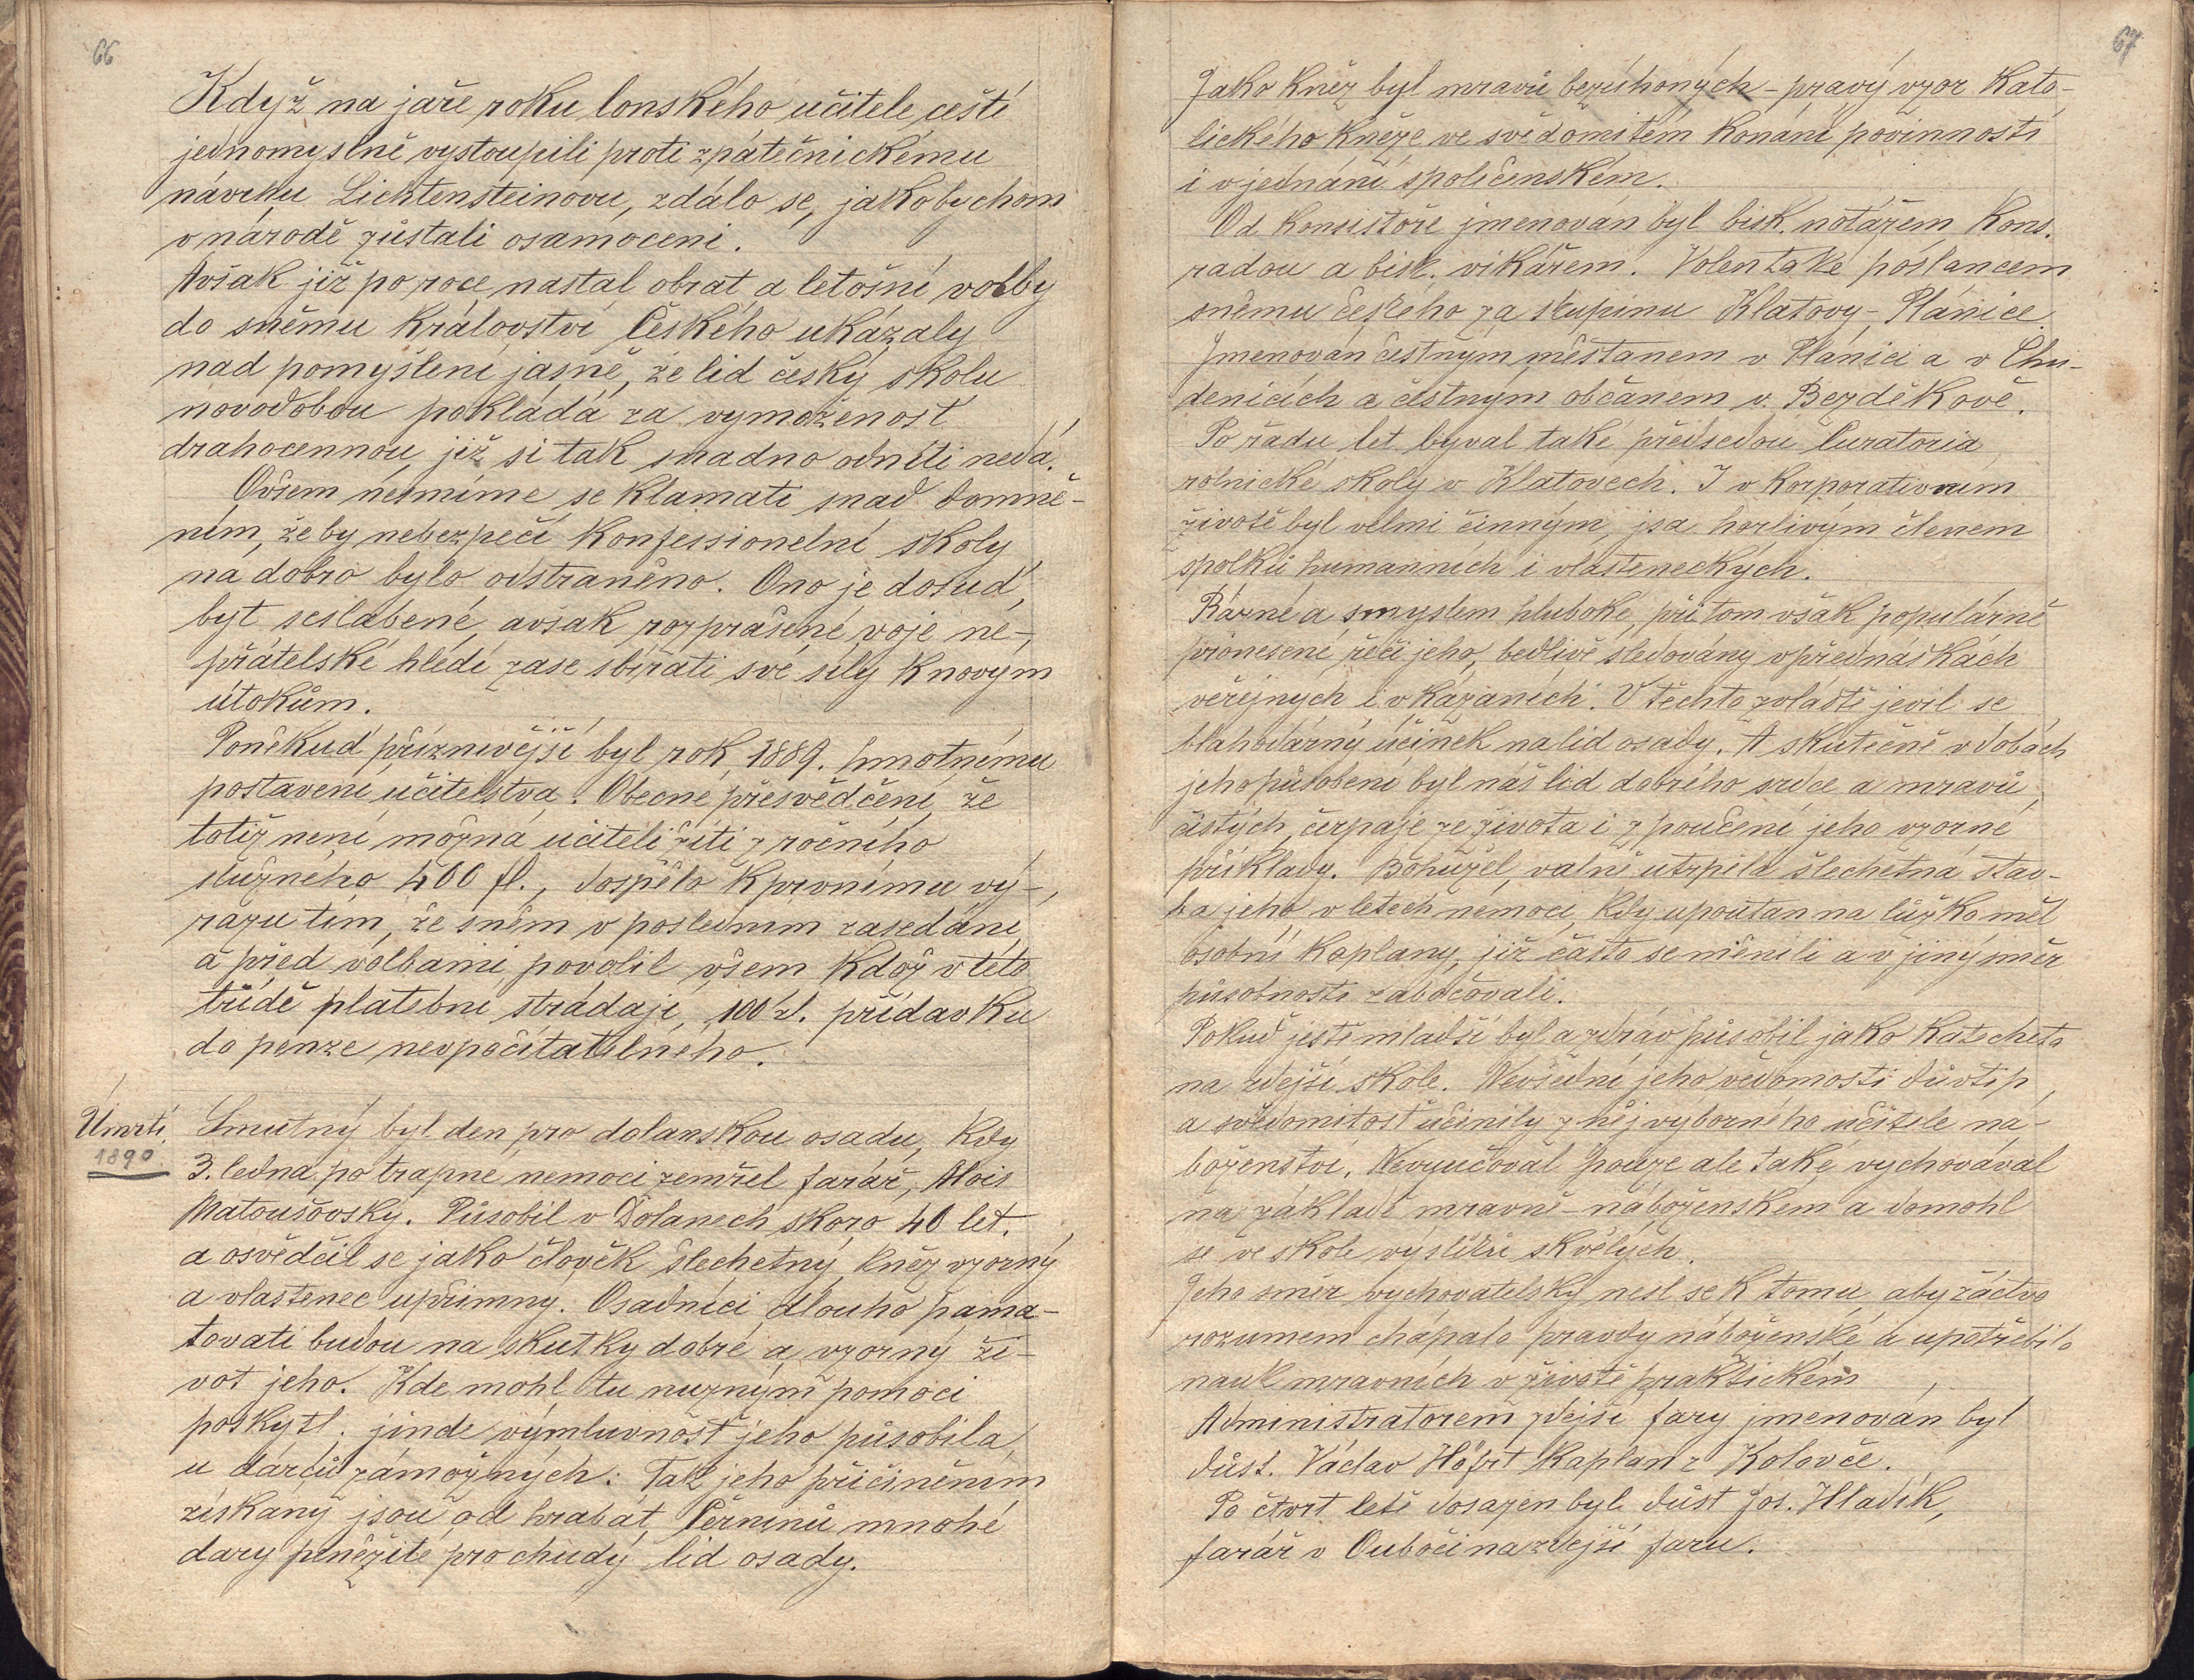 66
Když na jaře roku lonského učitelé čeští
jednomyslně vystoupili proti zpátečnickému
návrhu Lichtensteinovu, zdálo se, jakobychom
v národě zůstali osamoceni.
Avšak již po roce nastal obrat a letošní volby
do sněmu Království Českého ukázaly
nad pomyšlení jasně, že lid český školu
novodobou pokládá za vymoženost
drahocennou, již si tak snadno odníti nedá.
Ovšem nesmíme se klamati snad domně-
ním, že by nebezpečí konfessionelní školy
na dobro bylo odstraněno. Ono je dosud,
byť seslabené, avšak rozprášené voje ne-
přátelské hledí zase sbírati své síly k novým
útokům.
Poněkud příznivější byl rok 1889. hmotnému
postavení učitelstva. Obecné přesvědčení, že
totiž není možná učiteli žíti z ročního
služného 400 fl., dospělo k prvnímu vý-
razu tím, že sněm v posledním zasedání
a před volbami povolil všem, kdož v této
třídě platební strádají, 100 zl. přídavku
do penze nevpočítatelného.
Úmrtí.
1890
Smutný byl den pro dolanskou osadu, kdy
3. ledna po trapné nemoci zemřel farář, Alois
Matoušovský. Působil v Dolanech skoro 40 let.
a osvědčil se jako člověk šlechetný, kněz vzorný
a vlastenec upřímný. Osadníci dlouho pama-
tovati budou na skutky dobré a vzorný ži-
vot jeho. Kde mohl tu nuzným pomoci
poskytl. jinde výmluvnost jeho působila
u dárců zámožných: Tak jeho přičiněním
získány jsou od hrabat Černínů mnohé
dary peněžité pro chudý lid osady.
67
Jako kněz byl mravů bezúhonných - pravý vzor kato-
lického kněze ve svědomitém konání povinností
i v jednání společenském.
Od konsistoře jmenován byl bisk. notářem, kons.
radou a bisk. vikářem. Volen také poslancem
sněmu českého za skupinu Klatovy - Plánice
Jmenován čestným měšťanem v Plánici a v Chu-
denicích a čestným občanem v Bezděkově.
Po řadu let býval také předsedou Curatoria
rolnické školy v Klatovech. I v korporativním
životě byl velmi činným, jsa horlivým členem
spolků humanních i vlasteneckých.
Rázné a smyslem hluboké, při tom však populárně
pronesené řeči jeho, bedlivě sledovány v přednáškách
veřejných i v kázaních. V těchto zvláště jevil se
blahodárný účinek na lid osady. A skutečně v dobách
jeho působení byl náš lid dobrého srdce a mravů
čistých, čerpaje ze života i z poučení jeho vzorné
příklady. Bohužel, valně utrpěla šlechetná stav-
ba jeho v letech nemoci, kdy upoután na lůžko měl
osobní kaplany, již často se měnili a v jiný směr
působnosti zabočovali.
Pokud ještě mladší byl a zdráv působil jako katecheta
na zdejší škole. Nevšední jeho vědomosti důvtip
a svědomitost učinily z něj výborného učitele ná-
boženství. Nevyučoval pouze ale také vychovával
na základě mravně - náboženském a domohl
se ve škole výsledků skvělých.
Jeho směr vychovatelský nesl se k tomu, aby žáctvo
rozumem chápalo pravdy náboženské a upotřebilo
nauk mravních v životě praktickém
Administratorem zdejší fary jmenován byl
důst. Václav Höfrt kaplan z Kolovče.
Po čtvrt letě dosazen byl důst Jos. Hladík,
farář v Oubočí na zdejší faru.